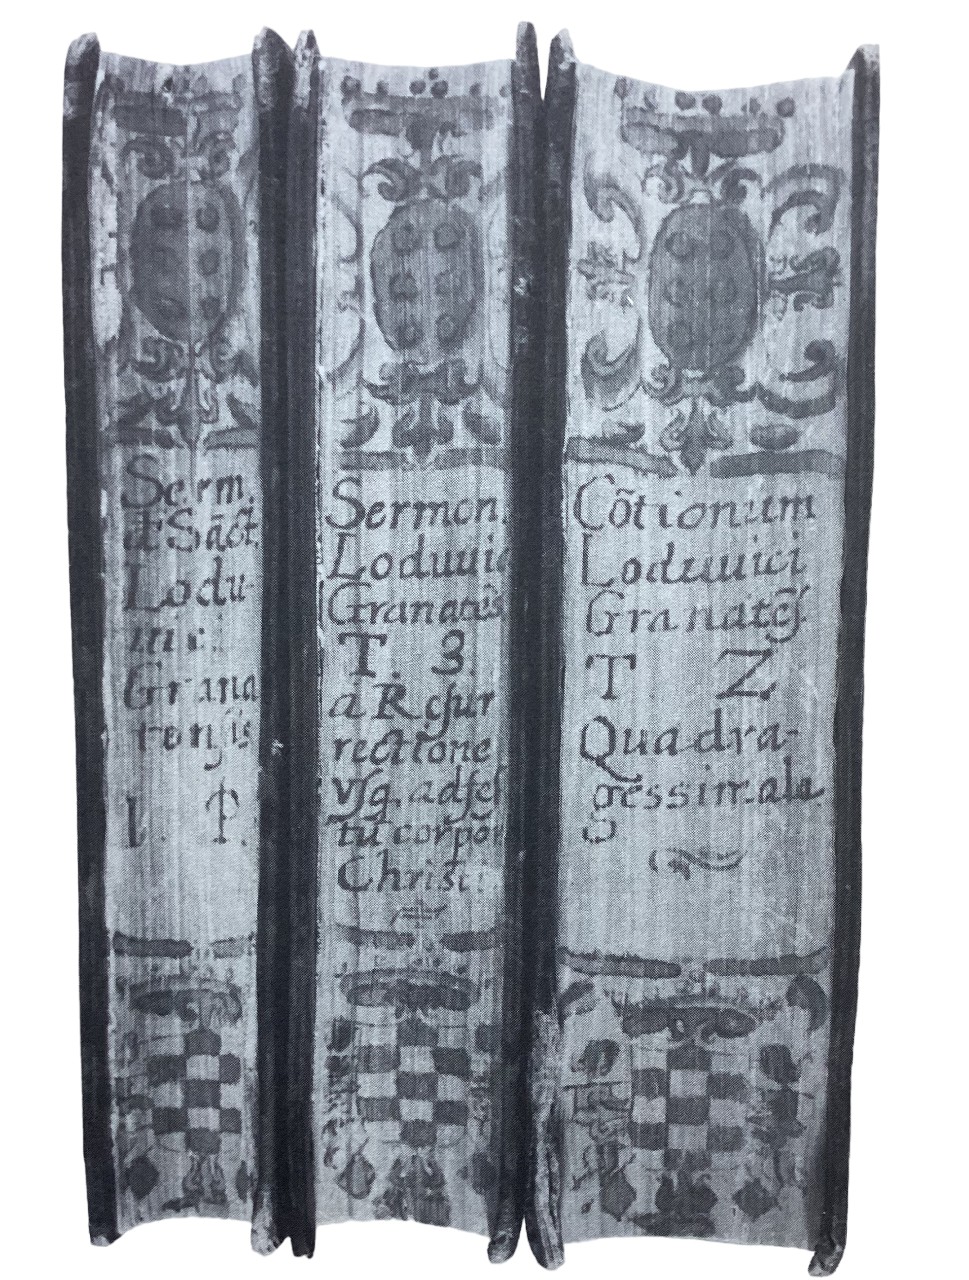 Serm.
d Sāct.
Lodu-
uic.
Grana
tensis
1. P.
Sermon.
Loduuic
Granatēs
T. 3
a Resur
rectione
vsq. ad fes
tū corpor
Christi
Cōtionum
Loduuici
Granatēs.
T Z
Quadra-
gessimale